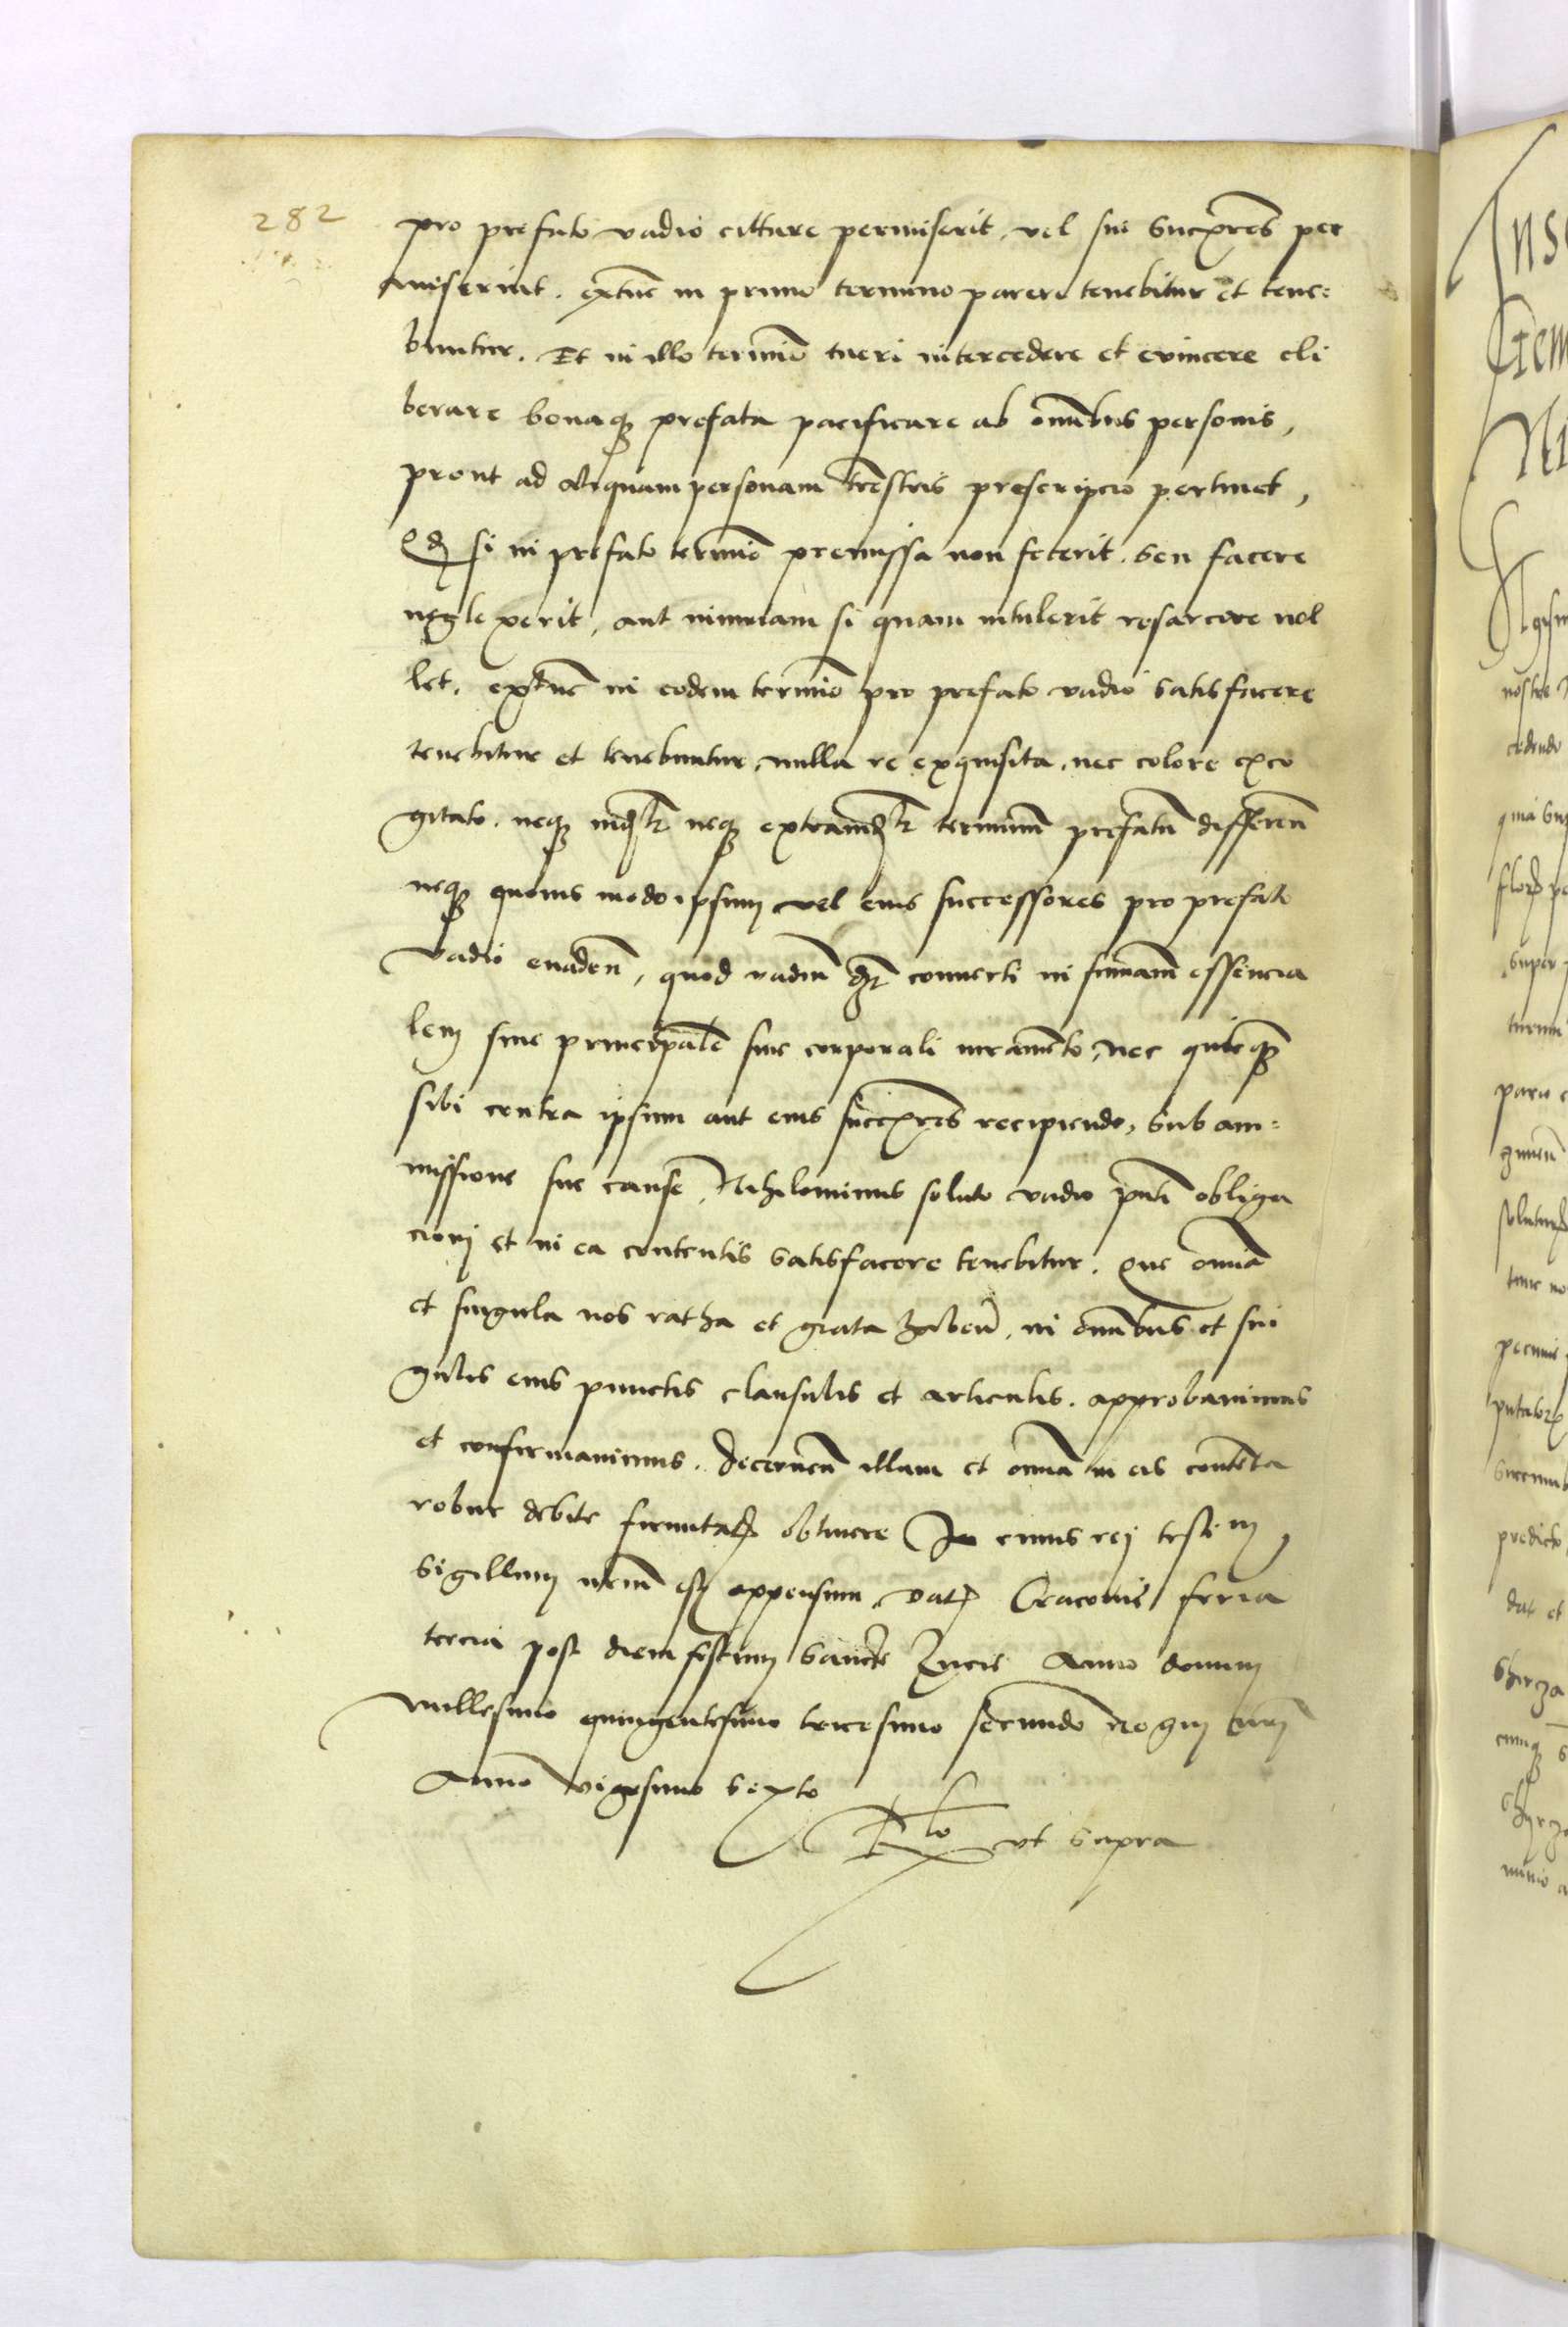 282
pro prefato vadio cittare permiserit, vel sui successores per
miserint. extunc in primo termino parere tenebitur et tene=
buntur. Et in illo termino tueri intercedere et evincere eli
berare bonaq prefata pacificare ab omnibus personis,
prout ad aliquam personam terrestris prescripcio pertinet,
Qd si in prefato termino premissa non fecerit. seu facere
neglexerit, aut iniuriam si quam intulerit resarcire nol
let. extunc in eodem termino pro prefato vadio satisfacere
tenebitur et tenebuntur, nulla re exquisita, nec colore exco
gitato. neq neq terminum prefatum differen
neq quovis modo ipsum vel eius successores pro prefato
vadio evaden, quod vadium converti in summam essencia
lem sive principalem sine corporali iuramento, nec quicq
sibi contra ipsum aut eius successores recipiendo, sub am=
missione sue cause, Nihilominus soluto vadio pnti obliga
cionj et in ea contentis satisfacere tenebitur. Que omnia
et singula nos ratha et grata haben, in omnibus et sin
gulis eius punctis clausulis et articulis. approbavimus
et confirmavimus. decernen illam et omnia in eis contenta
robur debite firmitatis obtinere In cuius rej testim
sigillum nrum est appensum. Dat Cracovie feria
tercia post diem festum Sancte Lucie Anno domini
millesimo quingentesimo tricesimo secundo Regni nri
Anno vigesimo sexto
Rlo vt supra
Item
nostre
super
paru
predicto
dat et